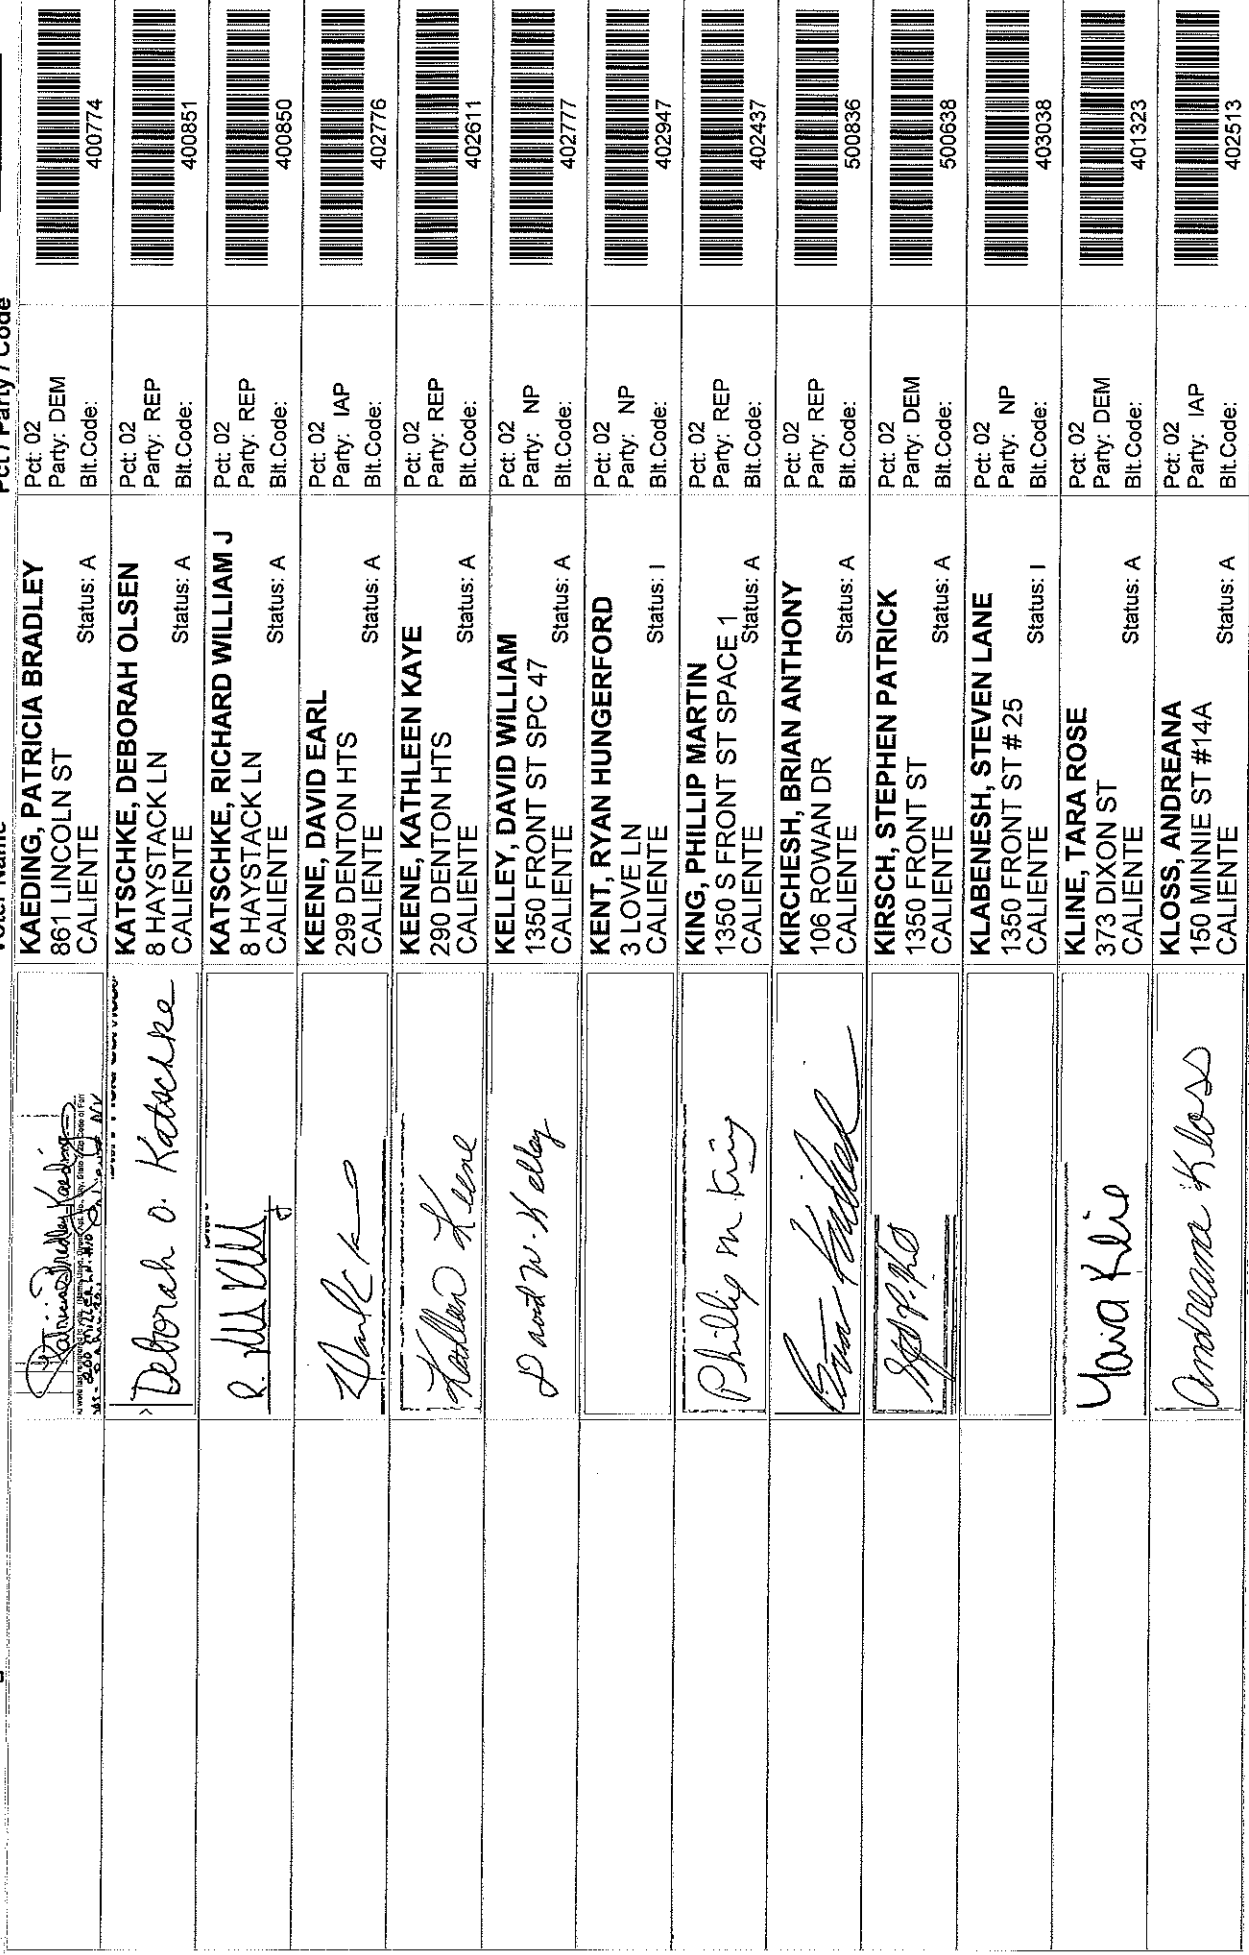 Voter Name
Pct / Party / Code
Patricia Bradley Kaeding
KAEDING, PATRICIA BRADLEY
861 LINCOLN ST
CALIENTE
Status: A
Pct: 02
Party: DEM
Blt.Code:
400774
Deborah O. Katschke
KATSCHKE, DEBORAH OLSEN
8 HAYSTACK LN
CALIENTE
Status: A
Pct: 02
Party: REP
Blt.Code:
400851
R.
KATSCHKE, RICHARD WILLIAM J
8 HAYSTACK LN
CALIENTE
Status: A
Pct: 02
Party: REP
Blt.Code:
400850
KEENE, DAVID EARL
299 DENTON HTS
CALIENTE
Status: A
Pct: 02
Party: IAP
Blt.Code:
402776
Kathleen Keene
KEENE, KATHLEEN KAYE
290 DENTON HTS
CALIENTE
Status: A
Pct: 02
Party: REP
Blt.Code:
402611
David W. Kelley
KELLEY, DAVID WILLIAM
1350 FRONT ST SPC 47
CALIENTE
Status: A
Pct: 02
Party: NP
Blt.Code:
402777
KENT, RYAN HUNGERFORD
3 LOVE LN
CALIENTE
Status: I
Pct: 02
Party: NP
Blt.Code:
402947
Phillip M King
KING, PHILLIP MARTIN
1350 S FRONT ST SPACE 1
CALIENTE
Status: A
Pct: 02
Party: REP
Blt.Code:
402437
KIRCHESH, BRIAN ANTHONY
106 ROWAN DR
CALIENTE
Status: A
Pct: 02
Party: REP
Blt.Code:
500836
KIRSCH, STEPHEN PATRICK
1350 FRONT ST
CALIENTE
Status: A
Pct: 02
Party: DEM
Blt.Code:
500638
KLABENESH, STEVEN LANE
1350 FRONT ST # 25
CALIENTE
Status: I
Pct: 02
Party: NP
Blt.Code:
403038
Tara Kline
KLINE, TARA ROSE
373 DIXON ST
CALIENTE
Status: A
Pct: 02
Party: DEM
Blt.Code:
401323
Andreana Kloss
KLOSS, ANDREANA
150 MINNIE ST #14A
CALIENTE
Status: A
Pct: 02
Party: IAP
Blt.Code:
402513